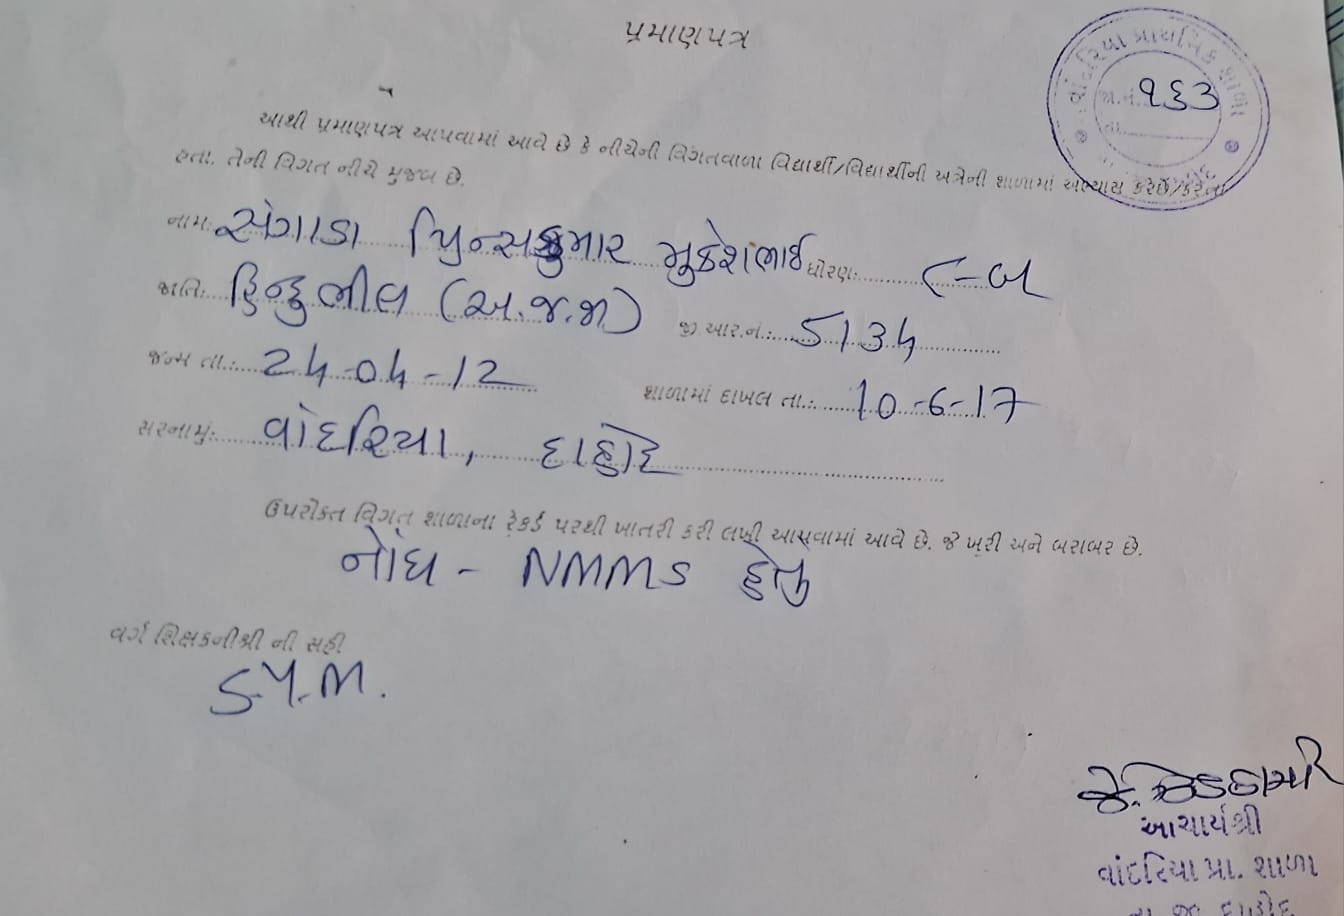 પ્રમાણપત્ર
વાંદરિયા પ્રાથમિક શાળા
જા.નં. ૧૬૩
તા.
આથી પ્રમાણપત્ર આપવામાં આવે છે કે નીચેની વિગતવાળા વિદ્યાર્થી/વિદ્યાર્થીની અત્રેની શાળામાં અભ્યાસ કરેછે/કરતા
હતા. તેની વિગત નીચે મુજબ છે.
નામ: સંગાડા પ્રિન્સકુમાર મુકેશભાઈ ધોરણ: ૮-બ
જાતિ: હિન્દુ ભીલ (અ.જ.જા) જી આર.નં.: 5134
જન્મ તા.: 24-04-12 શાળામાં દાખલ તા.: 10-6-17
સરનામું: વાંદરિયા, દાહોદ
ઉપરોક્ત વિગત શાળાના રેકર્ડ પરથી ખાતરી કરી લખી આપવામાં આવે છે. જે ખરી અને બરાબર છે.
નોંધ - NMMS હેતુ
વર્ગ શિક્ષકનીશ્રી ની સહી
S.Y.M.
આચાર્યશ્રી
વાંદરિયા પ્રા. શાળા
તા જી દાહોદ